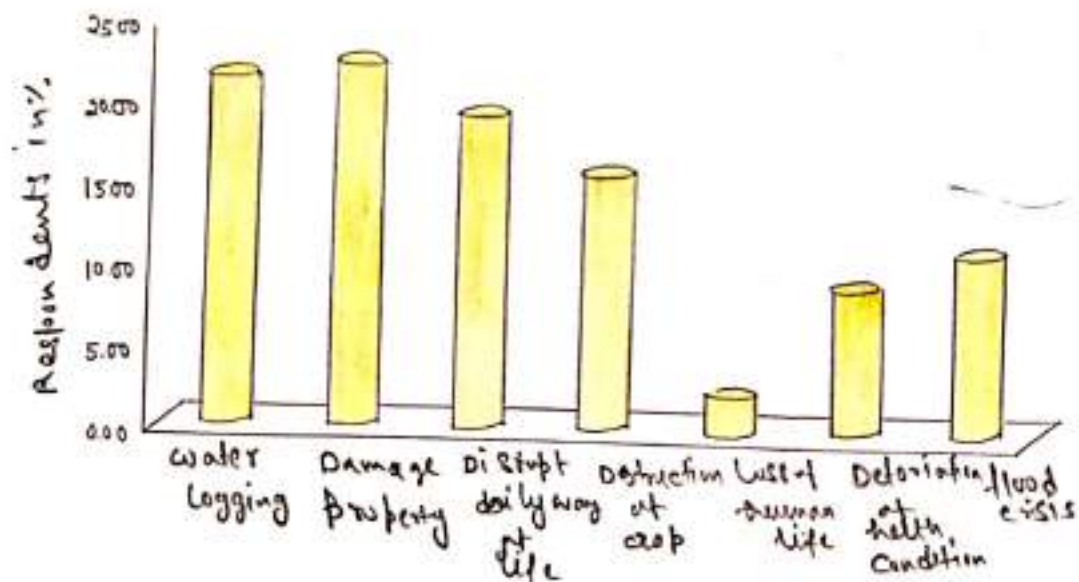 Respondents in%
2500
20.00
1500
10.00
5.00
0.00
water
logging
Damage
property
Disrupt
daily way
of
life
Destruction
of
crop
Loss of
human
life
Deterioration
of
helth,
Condition
flood
crisis